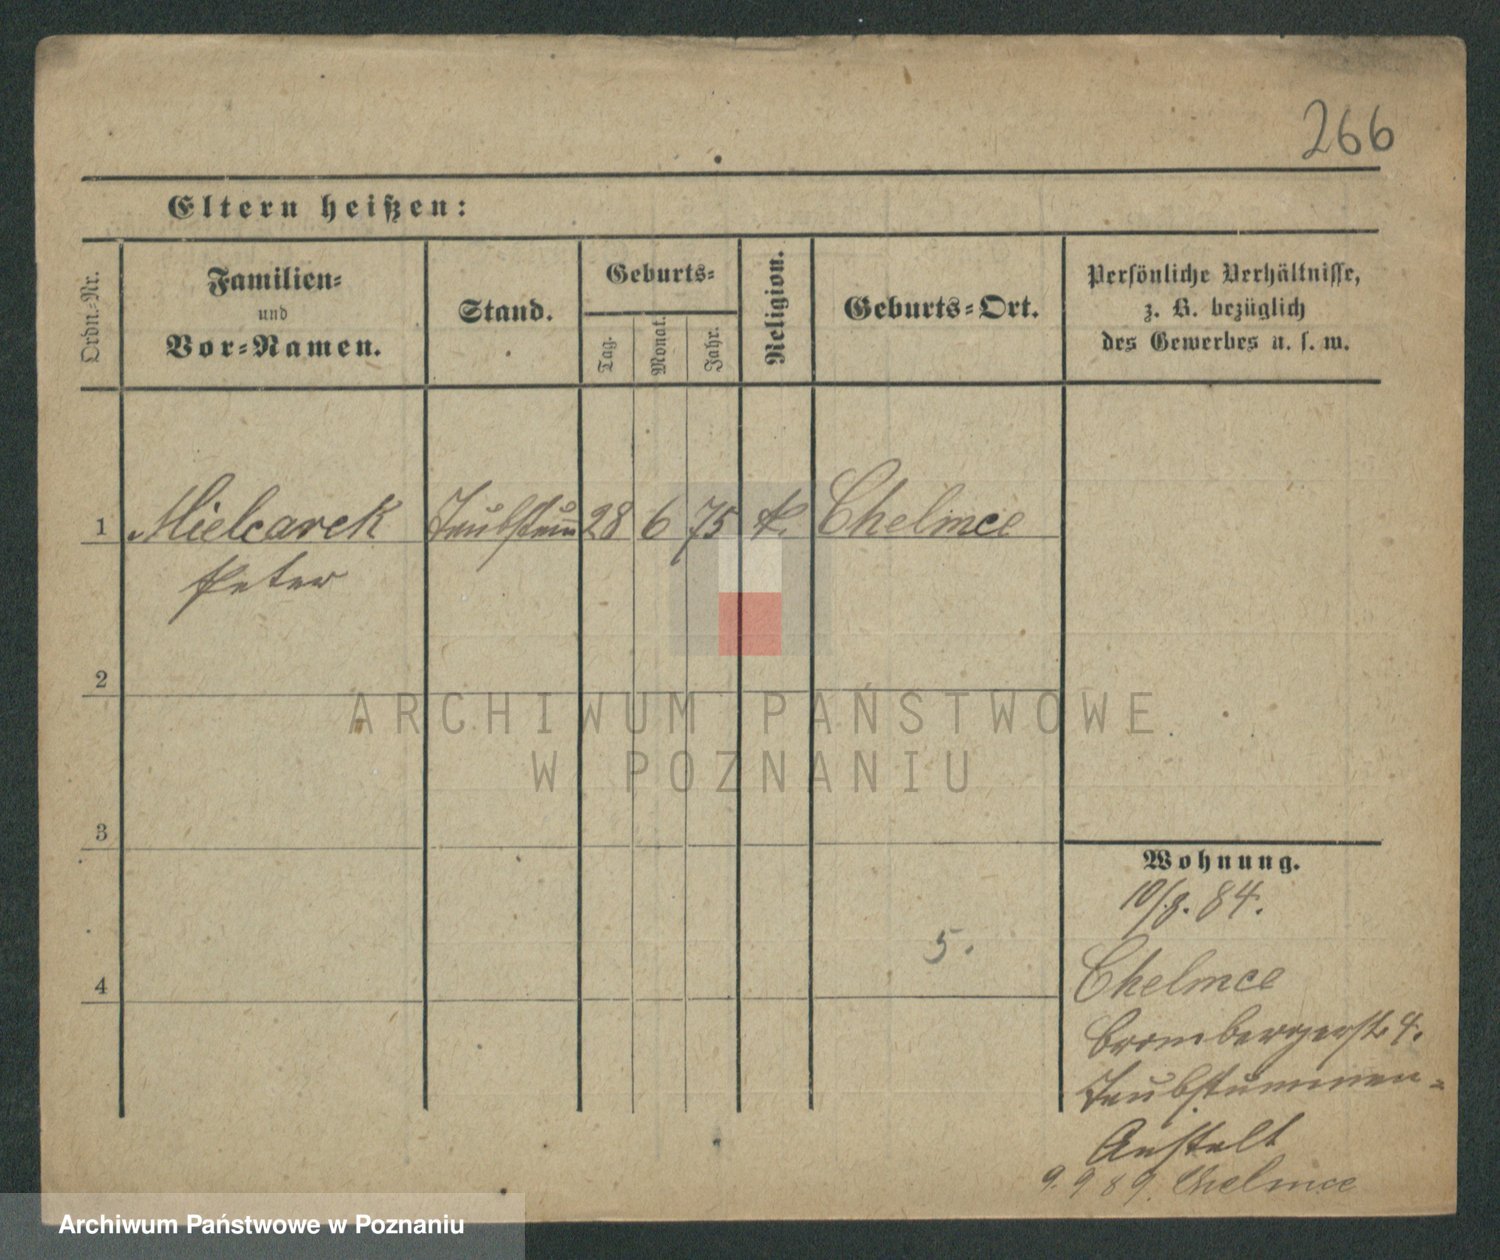 266
Eltern heißen:
Ordn.-Nr.
Familien-
und
Vor-Namen.
Stand.
Geburts-
Tag.
Monat.
Jahr.
Religion.
Geburts-Ort.
Persönliche Verhältnisse,
z. B. bezüglich
des Gewerbes u. s. w.
1 Mielcarek Taubstum̅ 28 6 75 k. Chelmce
Peter
2
ARCHIWUM PAŃSTWOWE
W POZNANIU
3
Wohnung.
10/8. 84.
5.
Chelmce
4
Brombergerst. 4.
Taubstummen-
Anstalt
9. 9 89. Chelmce
Archiwum Państwowe w Poznaniu